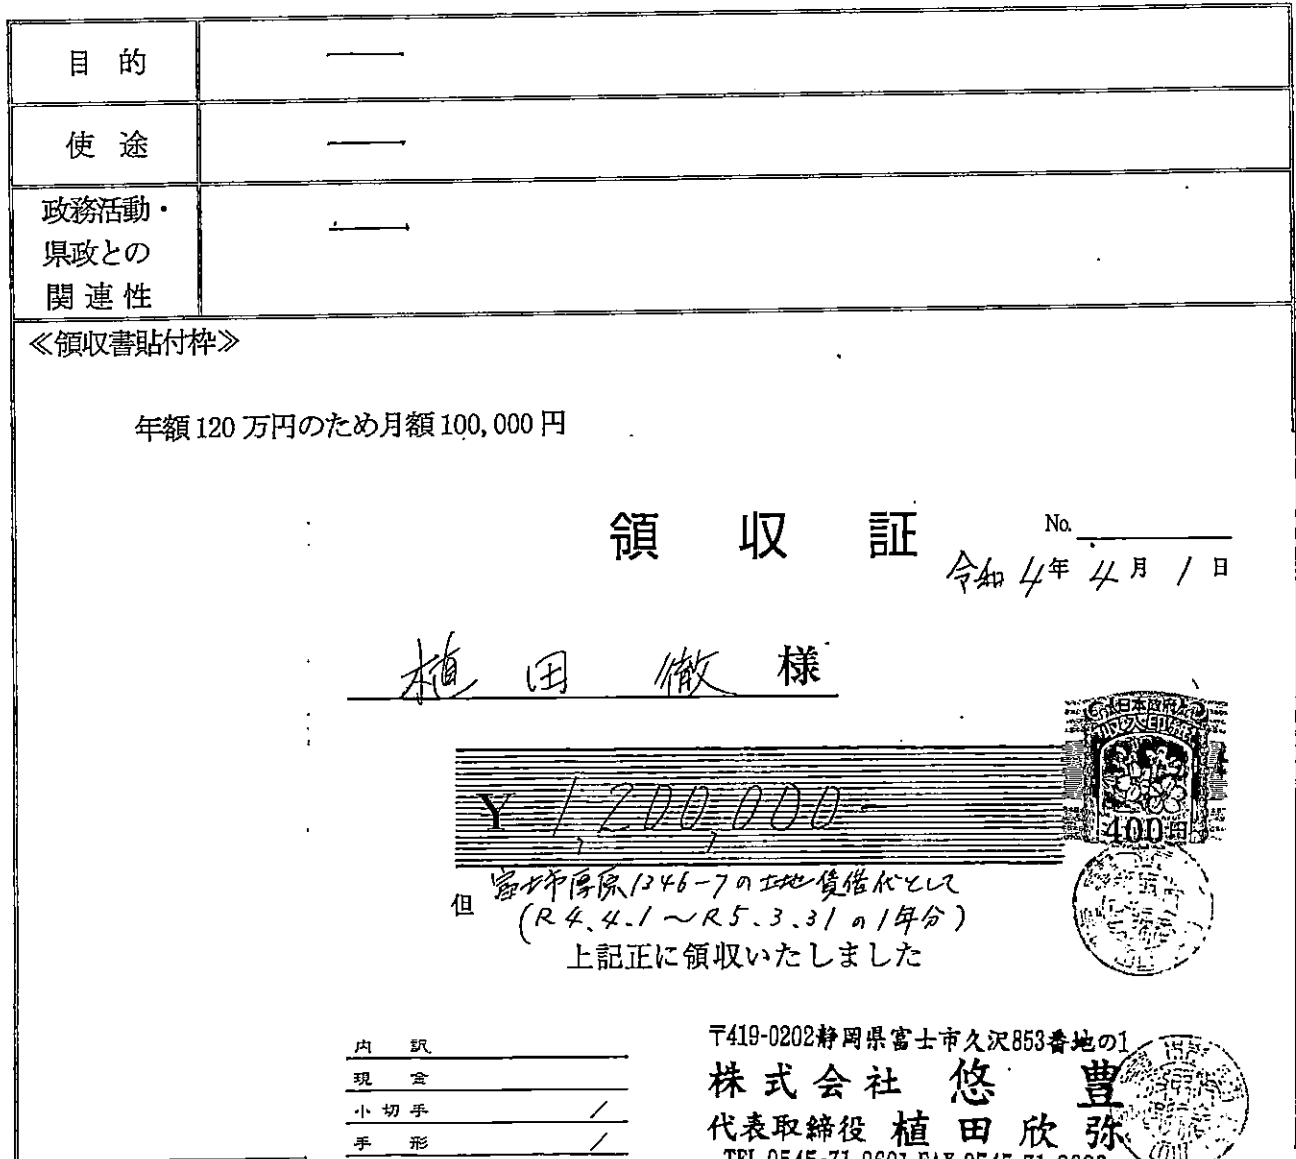 目 的 ――
使 途 ――
政務活動・
県政との
関連性 ――
≪領収書貼付枠≫
年額120万円のため月額100,000円
領 収 証
No.
令和4年4月1日
植田 徹 様
日本政府
収入印紙
400円
¥1,200,000-
但 富士市厚原1346-7の土地賃借代として
(R4.4.1～R5.3.31の1年分)
上記正に領収いたしました
内 訳
現 金
小切手 /
手 形 /
〒419-0202静岡県富士市久沢853番地の1
株式会社 悠豊
代表取締役 植田欣弥